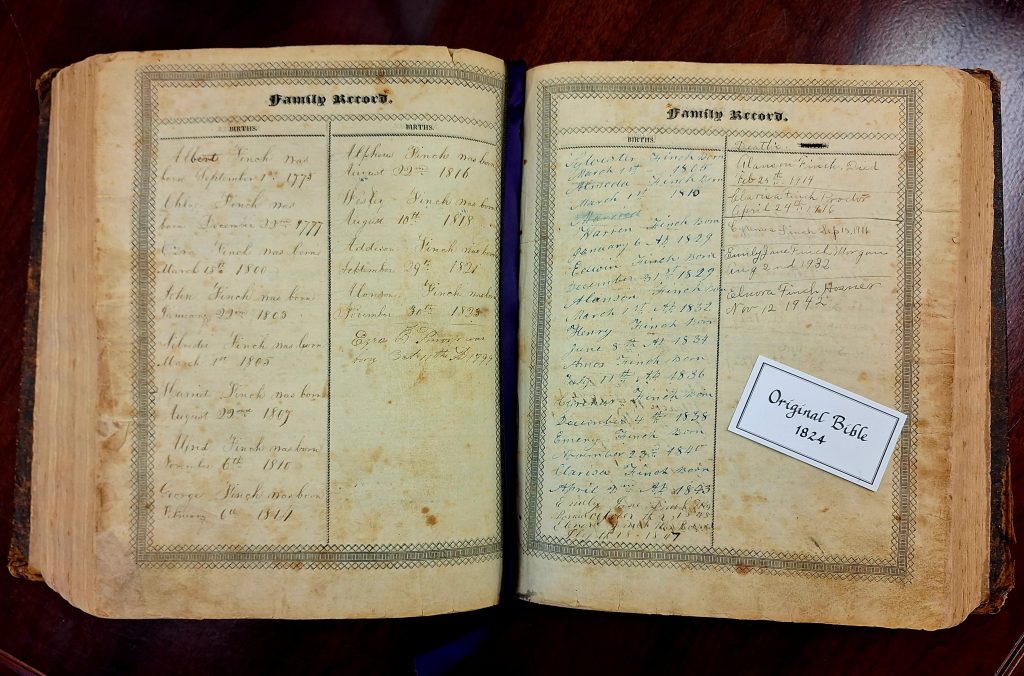 Family Record.
BIRTHS.
Albert Finch was
born September 1st 1775
Finch was
born December 22nd 1777
Finch was born
March 15th 1800
John Finch was born
January 22nd 1803
Finch was born
March 1st 1805
Harriet Finch was born
August 22nd 1807
Alfred Finch was born
November 6th 1810
George Finch was born
February 6th 1814
BIRTHS.
Alpheus Finch was born
August 22nd 1816
Wesley Finch was born
August 10th 1818
Addison Finch was born
September 29th 1821
Finch was born
December 30th 1823
Ezra B was
born
Family Record.
BIRTHS.
Sylvester Finch Born
March 1st 1805
Almeda Finch Born
March 1st 1810
Warren Finch Born
January 6 At 1829
Edwin Finch Born
December 31st 1829
Alanson Finch Born
March 1st At 1832
Henry Finch Born
June 8th At 1834
Amos Finch Born
July 11th At 1836
Finch Born
December 4th 1838
Emery Finch Born
November 23rd 1840
Clarisa Finch Born
April 2nd At 1843
Emily Jane Finch
Finch Was Born
Deaths
Alanson Finch Died
Feb 25th 1914
Clarisa Finch Proctor
April 24th 1916
Finch Sep 13, 1916
Emily Jane Finch Morgan
Aug 2nd 1932
Elnora Finch Hosner
Nov 12 1942
Original Bible
1824